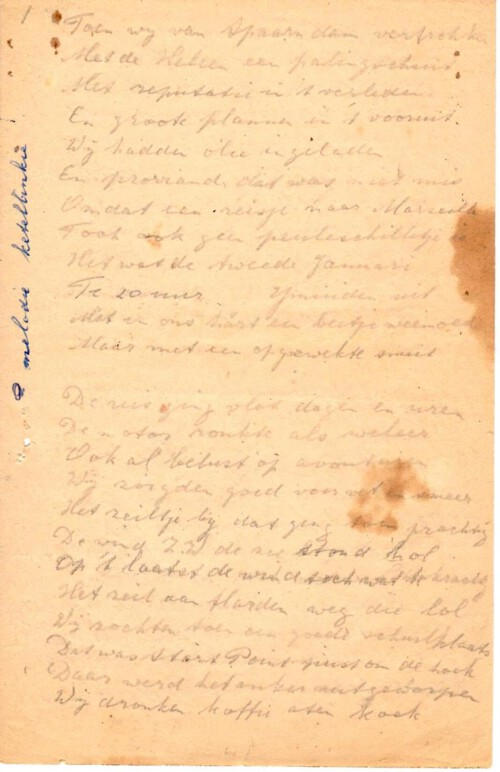 1
Toen wy van Spaarndam vertrokken
Met de Heleen een palingschuit
Met reputatie in 't verleden.
En groote plannen in 't vooruit.
Wij hadden olie ingeladen
En proviand, dat was niet mis
Omdat een reisje naar Marseille
Toch ook geen peuleschilletje is
Het was de tweede Januari
Te 20 uur Ymuiden uit
Met in ons hart een beetje weemoed
Maar met een opgewekte snuit
De reis ging vlot dagen en uren
De motor ronkte als weleer
Ook al belust op avonturen
Wij zorgden goed voor vet en smeer
Het zeiltje bij dat ging toen prachtig
De wind Z.W. de zee stond hol
Op 't laatst de wind toch wat te krachtig
Het zeil aan flarden weg die lol
Wij zochten toen een goede schuilplaats
Dat was Start Point juist om de hoek
Daar werd het anker uitgeworpen
Wij dronken koffie aten koek
melodie ketelbinkie